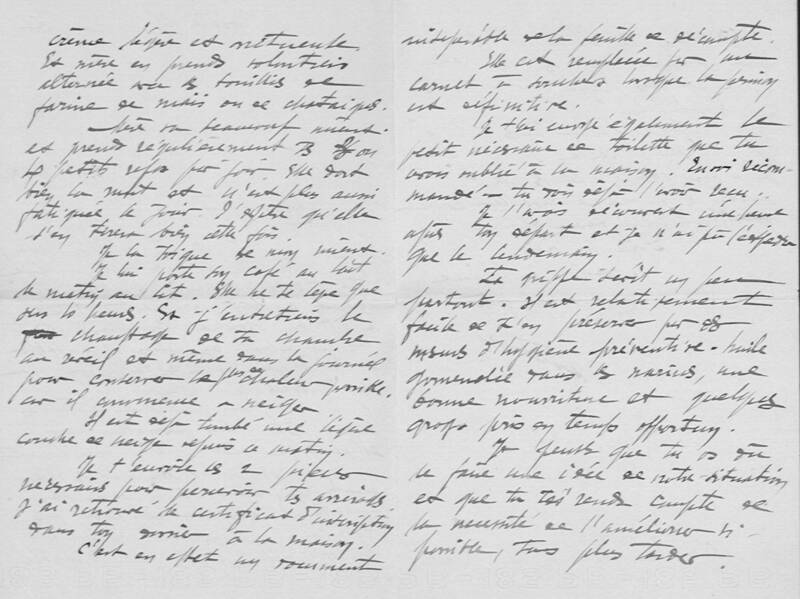 crème légère et onctueuse.
Ta mère en prends volontiers
alternée avec les bouillies de
farine de maïs ou de chataignes.
Mère va beaucoup mieux
et prend régulièrement 3 ou
4 petits repas par jour. Elle dort
bien la nuit et n'est plus aussi
fatiguée le jour. J'espère qu'elle
s'en tirera bien cette fois.
Je la soigne de mon mieux.
Je lui porte son café au lait
le matin au lit. Elle ne se lève que
vers 10 heures. Et j'entretiens le
chauffage de ta chambre
au réveil et même dans la journée
pour conserver le plus de chaleur possible.
car il commence à neiger
Il est déjà tombé une légère
couche de neige depuis ce matin.
Je t'envoie les 2 pièces
nécessaires pour percevoir tes arriérés
J'ai retrouvé le certificat d'inscription
dans ton dossier à la maison.
C'est en effet un document
inséparable de la feuille de décompte.
Elle est remplacée par un
carnet à souches lorsque la pension
est définitive.
Je t'ai envoyé également le
petit nécessaire de toilette que tu
avais oublié à la maison. Envoi recom-
mandé - tu dois déjà l'avoir reçu.
Je l'avais découvert
après ton départ et je n'ai pu l'expédier
que le lendemain.
La grippe sévit un peu
partout. Il est relativement
facile de s'en préserver par des
mesures d'hygiène préventive - huile
goménolée dans les narines, une
bonne nourriture et quelques
grogs pris en temps opportun.
Je pense que tu as dû
te faire une idée de notre situation
et que tu t'es rendu compte de
la nécessité de l'améliorer si
possible, sans plus tarder.